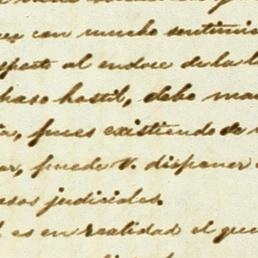 con mucho sentimie
specto al endoce de la l
chaso hostil, debo ma
ta, pues existiendo de
ar, puede V. disponer
esos judiciales.
es en realidad el que